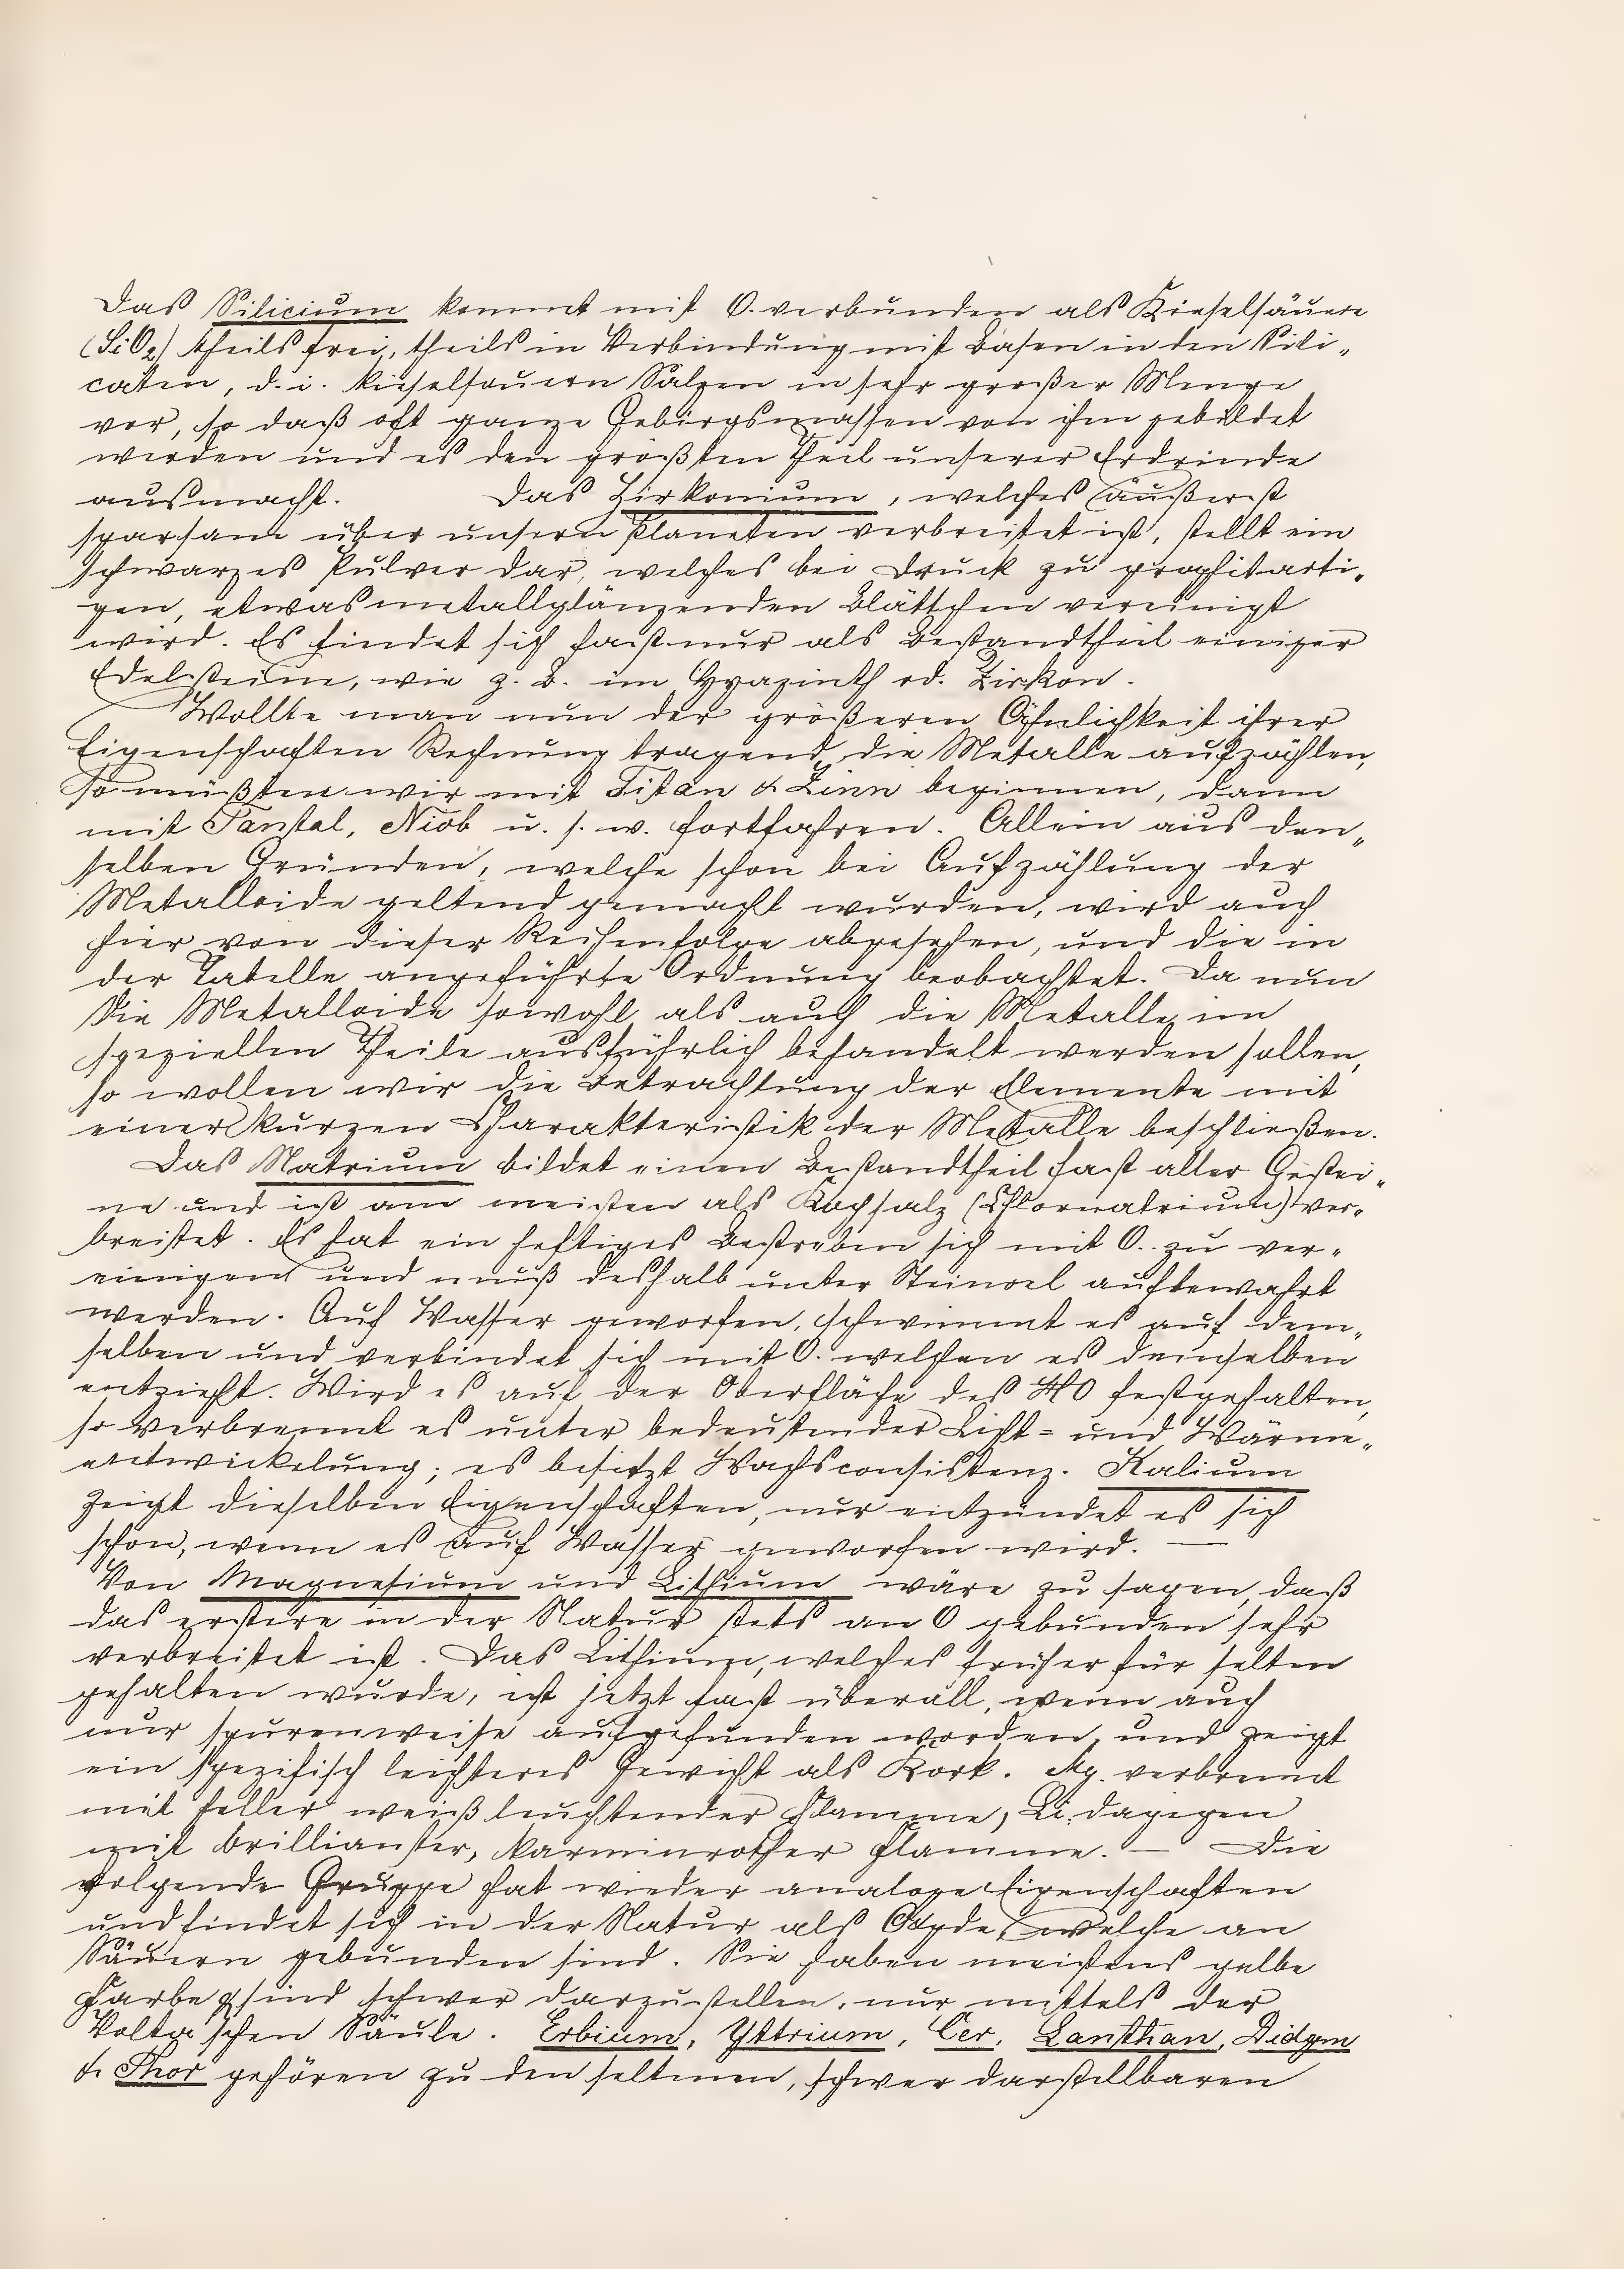 Das Silicium kommt mit O. verbunden als Kieselsäuere
(SiO2) theils frei, theils in Verbindung mit Basen in den Sili„
caten, d. i. kieselsauern Salzen in sehr großer Menge
vor, so daß oft ganze Gebirgsmassen von ihm gebildet
werden und es den größten Theil unserer Erdrinde
ausmacht. Das Zirkonium, welches äußerst
sparsam über unsern Planeten verbreitet ist, stellt ein
schwarzes Pulver dar, welches bei Druck zu graphitarti„
gen, etwas metallglänzenden Blättchen vereinigt
wird. Es findet sich fast nur als Bestandtheil einiger
Edelsteine, wie z. B. im Hyazinth od. Zirkon.
Wollte man nun der größeren Ähnlichkeit ihrer
Eigenschaften Rechnung tragend, die Metalle aufzählen,
so müßten wir mit Titan & Zinn beginnen, dann
mit Tantal, Niob u. s. w. fortfahren. Allein aus den„
selben Gründen, welche schon bei Aufzählung der
Metalloide geltend gemacht wurden, wird auch
hier von dieser Reihenfolge abgesehen, und die in
der Tabelle angeführte Ordnung beobachtet. Da nun
die Metalloide sowohl als auch die Metalle, im
speziellen Theile ausführlich behandelt werden sollen,
so wollen wir die Betrachtung der Elemente mit
einer kurzen Charakteristik der Metalle beschließen.
Das Natrium bildet einen Bestandtheil fast aller Gestei„
ne und ist am meisten als Kochsalz (Chlornatrium) ver„
breitet. Es hat ein heftiges Bestreben sich mit O. zu ver„
einigen und muß deshalb unter Steinoel aufbewahrt
werden. Auf Wasser geworfen, schwimmt es auf dem„
selben und verbindet sich mit O. welchen es demselben
entzieht. Wird es auf der Oberfläche des HO festgehalten,
so verbrennt es unter bedeutender Licht= und Wärme„
entwickelung; es besitzt Wachsconsistenz. Kalium
zeigt dieselben Eigenschaften, nur entzündet es sich
schon, wenn es auf Wasser geworfen wird. —
Von Magnesium und Lithium wäre zu sagen, daß
das erstere in der Natur stets an O gebunden sehr
verbreitet ist. Das Lithium, welches früher für selten
gehalten wurde, ist jetzt fast überall, wenn auch
nur spurenweise aufgefunden worden, und zeigt
ein spezifisch leichteres Gewicht als Kork. Mg. verbrennt
mit heller weiß leuchtender Flamme, Li. dagegen
mit brillianter, karminrother Flamme. — Die
folgende Gruppe hat wieder analoge Eigenschaften
und findet sich in der Natur als Oxyde, welche an
Säuern gebunden sind. Sie haben meistens gelbe
Farbe & sind schwer darzustellen, nur mittels der
Volta'schen Säule. Erbium, Yttrium, Cer, Lanthan, Didym
& Thor gehören zu den seltenen, schwer darstellbaren